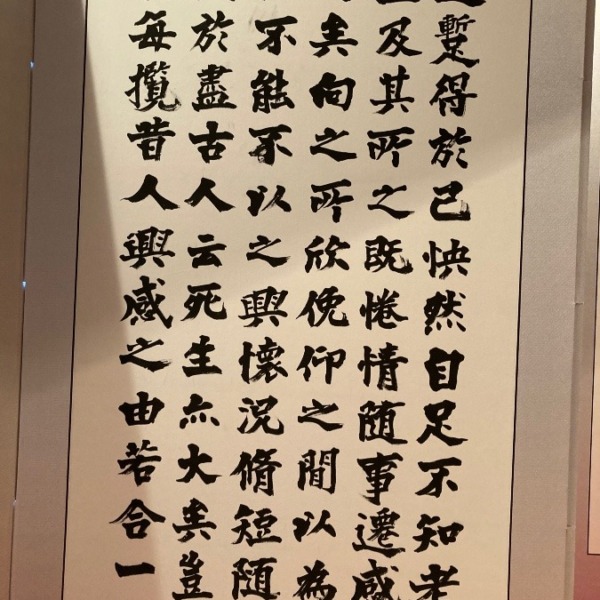 暫得於己怏然自足不知老
及其所之既惓情随事遷感
矣向之所欣俛仰之閒以為
不能不以之興懷況脩短随
於盡古人云死生亦大矣豈
每攬昔人興感之由若合一